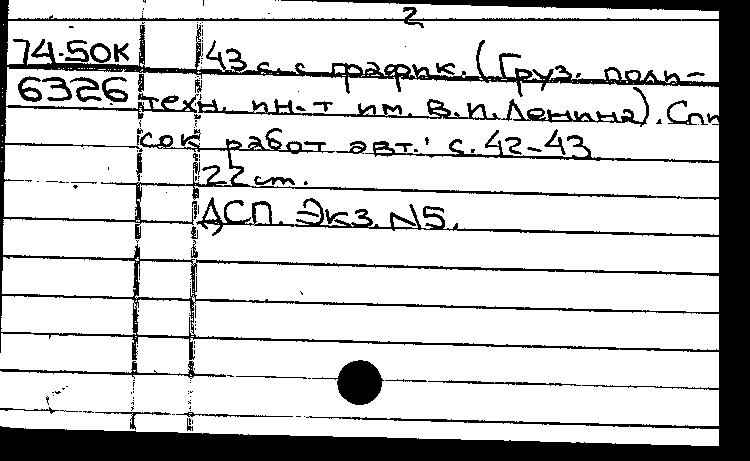 2
74-50К 43 с. с график. (Груз. поли-
6326 техн. ин-т им. В.И. Ленина). Спи
сок работ авт.: с. 42-43
22 cm.
ДСП. Экз. N5.